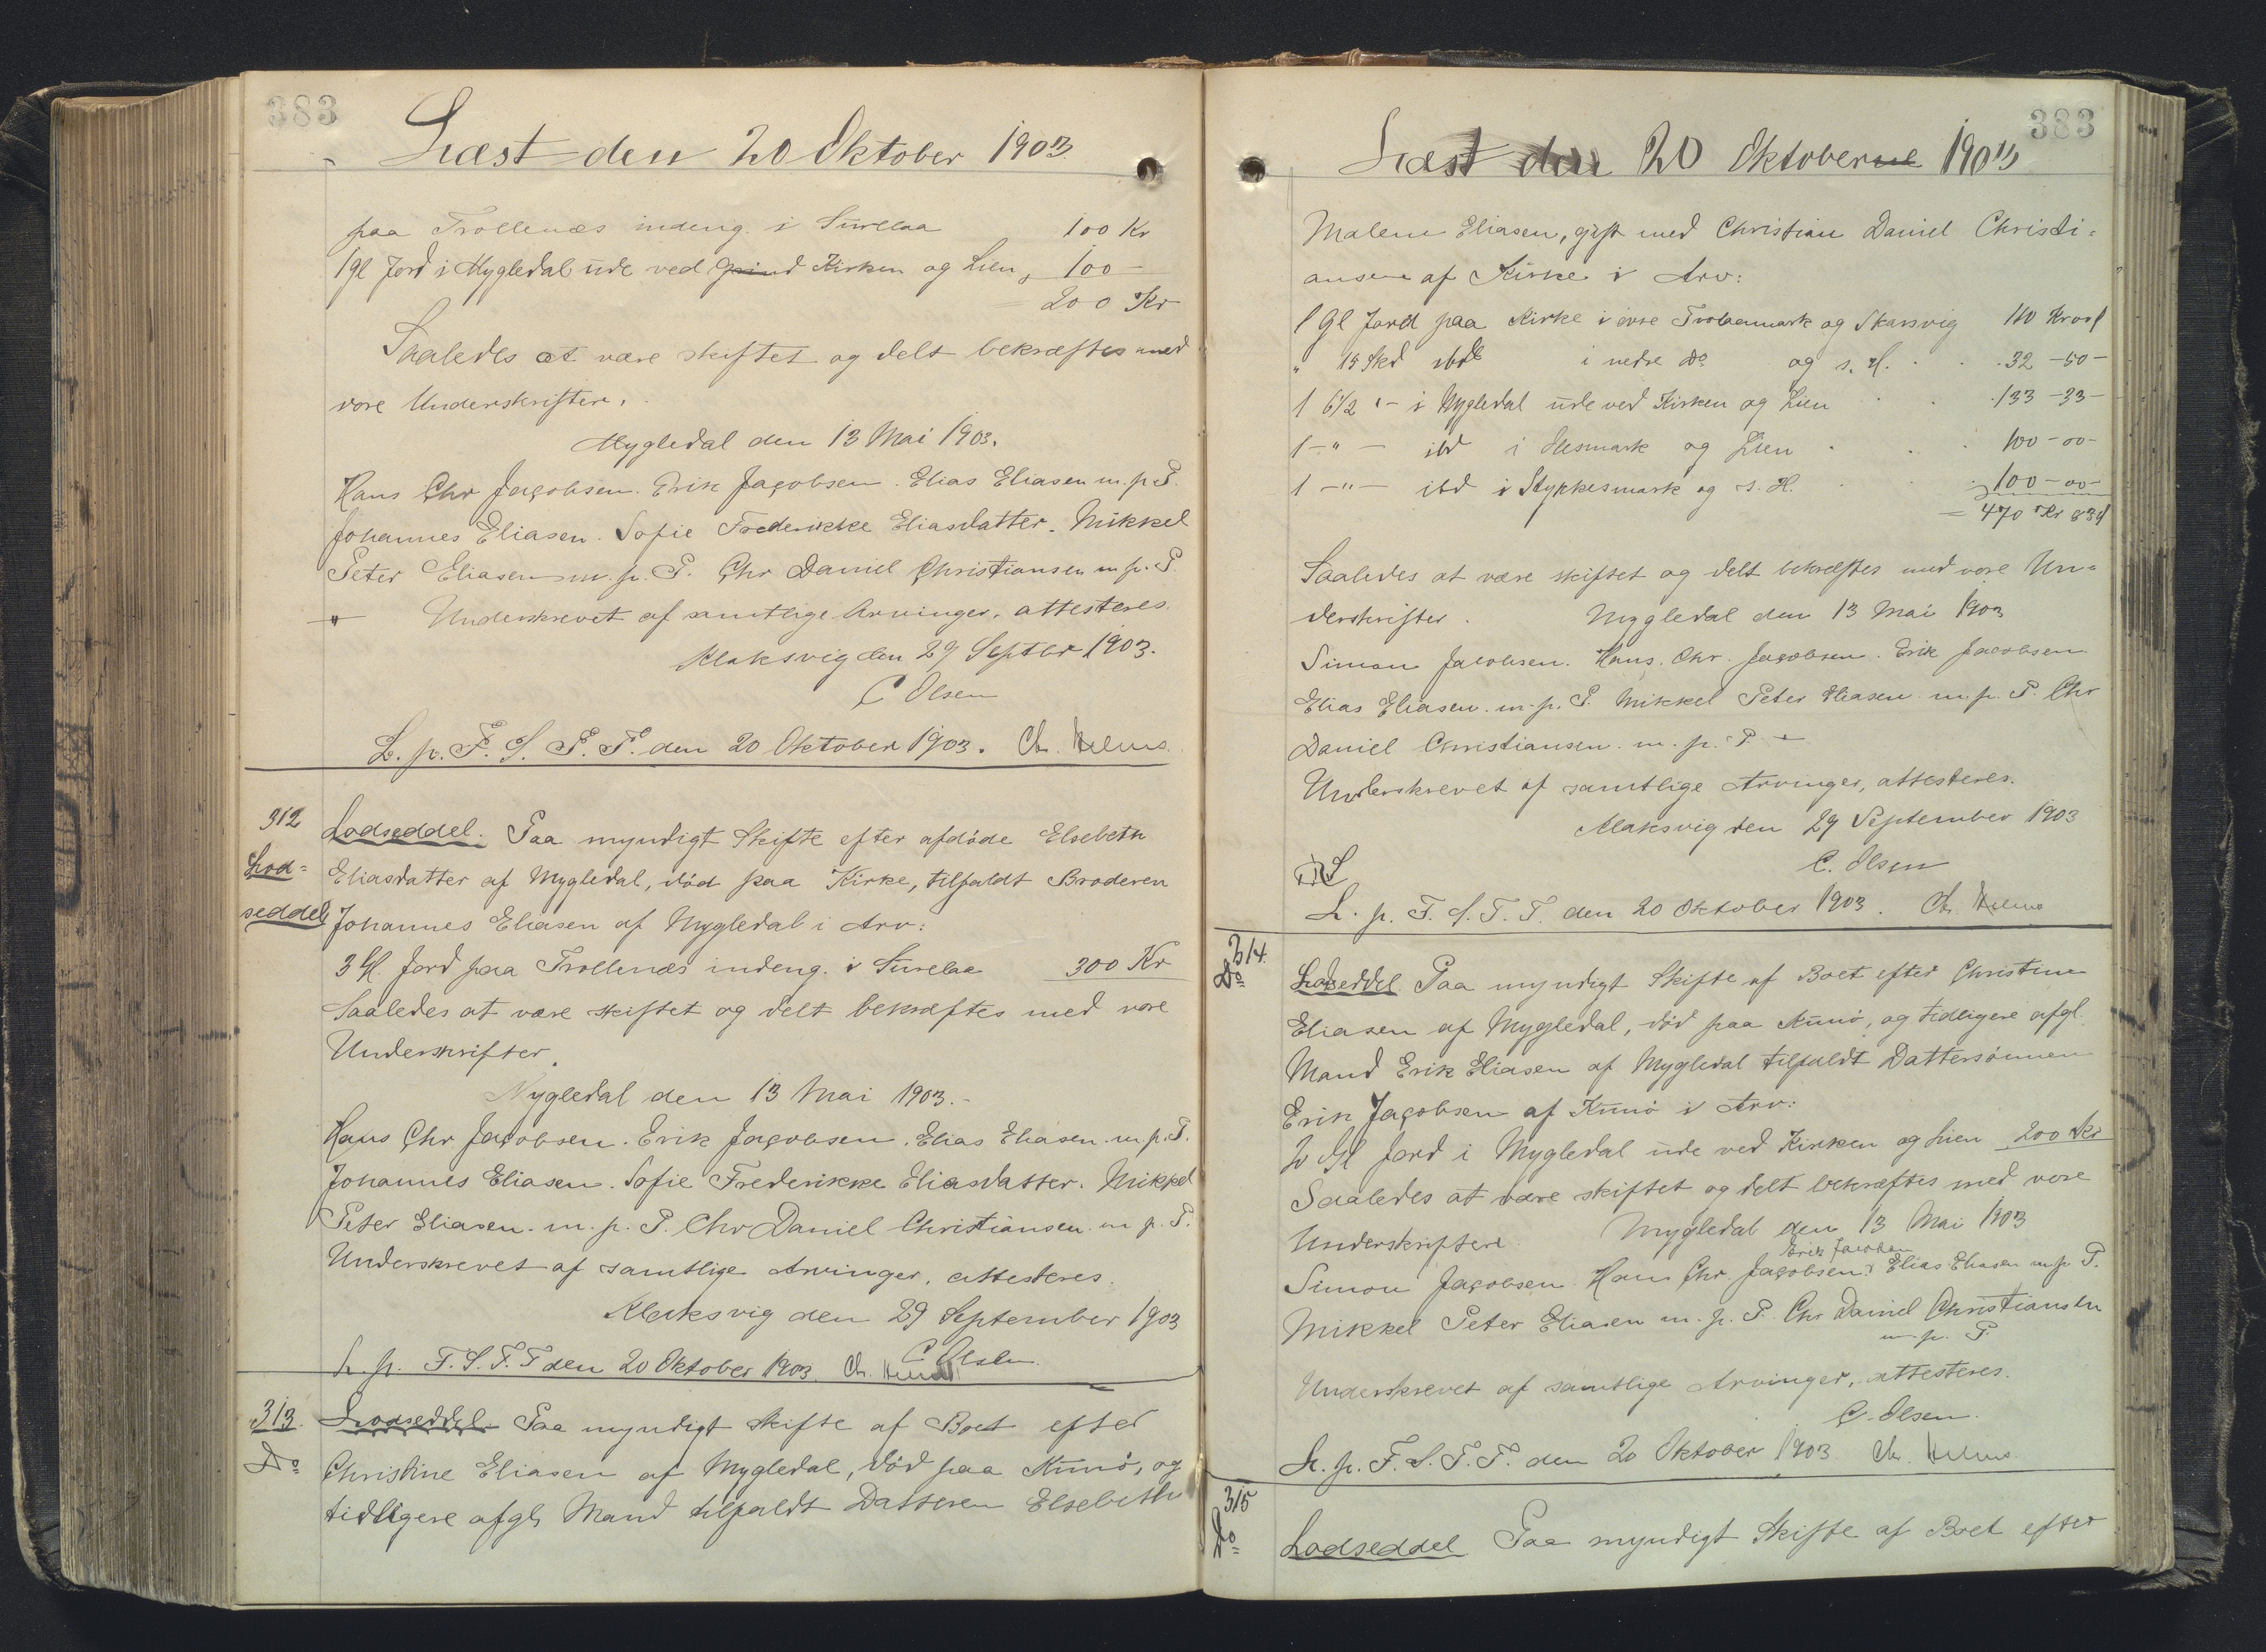 383
Læst den 20 Oktober 1903
paa Trollenæs indeng. i Surelaa 100 Kr
1 Gl Jord i Mygledal ude ved Kirken og Lien 100 -
= 200 Kr
Saaledes at være skiftet og delt bekræftes med
vore Underskrifter.
Mygledal den 13 Mai 1903.
Hans Chr Jacobsen. Erik Jacobsen. Elias Eliasen m. p. P.
Johannes Eliasen. Sofie Frederikke Eliasdatter. Mikkel
Peter Eliasen m. p. P. Chr Daniel Christiansen m. p. P.
" Underskrevet af samtlige Arvinger, attesteres.
Klaksvig den 29 Septbr 1903.
C Olsen
L. p. F. S. T. T. den 20 Oktober 1903. Chr. Helms.
312
Lod=
seddel
Lodseddel. Paa myndigt Skifte efter afdøde Elsebeth
Eliasdatter af Mygledal, død paa Kirke, tilfaldt Broderen
Johannes Eliasen af Mygledal i Arv:
3 Gl. Jord paa Trollenæs indeng. i Surelaa 300 Kr
Saaledes at være skiftet og delt bekræftes med vore
Underskrifter.
Mygledal den 13 Mai 1903.-
Hans Chr Jacobsen. Erik Jacobsen. Elias Eliasen m. p. P.
Johannes Eliasen. Sofie Frederikke Eliasdatter. Mikkel
Peter Eliasen. m. p. P. Chr Daniel Christiansen m p. P.
Underskrevet af samtlige Arvinger, attesteres.
Klaksvig den 29 September 1903
C Olsen.
L. p. F. S. T. T den 20 Oktober 1903. Chr. Helms
313.
Do
Lodseddel Paa myndigt Skifte af Boet efter
Christine Eliasen af Mygledal, død paa Kunø, og
tidligere afgl. Mand tilfaldt Datteren Elsebeth
383
Læst den 20 Oktober 1903
Malene Eliasen, gift med Christian Daniel Christi=
ansen af Kirke i Arv:
1 Gl Jord paa Kirke i øvre og Skarsvig 110 Kr
" 15 Skd ibd i nedre do og s. H. 32 - 50 -
1 6 1/2 " - i Mygledal ude ved Kirken og Lien 133 - 33 -
1 - " - ibd i og Lien 100 - 00 -
1 - " - ibd i Stykkesmark og s. H. 100 - 00 -
= 470 Kr 83
Saaledes at være skiftet og delt bekræftes med vore Un=
derskrifter. Mygledal den 13 Mai 1903
Simon Jacobsen. Hans. Chr. Jacobsen. Erik Jacobsen
Elias Eliasen. m. p. P. Mikkel Peter Eliasen m. p. P. Chr
Daniel Christiansen. m. p. P. -
Underskrevet af samtlige Arvinger, attesteres.
Klaksvig den 29 September 1903
C. Olsen
L. p. F. S. T. T. den 20 Oktober 1903. Chr. Helms
314.
Do
Lodseddel. Paa myndigt Skifte af Boet efter Christine
Eliasen af Mygledal, død paa Kunø, og tidligere afgl.
Mand Erik Eliasen af Mygledal tilfaldt Dattersønnen
Erik Jacobsen af Kunø i Arv:
2 Gl Jord i Mygledal ude ved Kirken og Lien 200 Kr
Saaledes at være skiftet og delt bekræftes med vore
Underskrifter. Mygledal den 13 Mai 1903
Simon Jacobsen. Hans Chr. Jacobsen. Erik Jacobsen Elias Eliasen m p P.
Mikkel Peter Eliasen m. p. P. Chr Daniel Christiansen
m. p. P.
Underskrevet af samtlige Arvinger, attesteres.
C. Olsen.
L. p. F. S. T. T. den 20 Oktober 1903 Chr. Helms
315
Do
Lodseddel. Paa myndigt Skifte af Boet efter